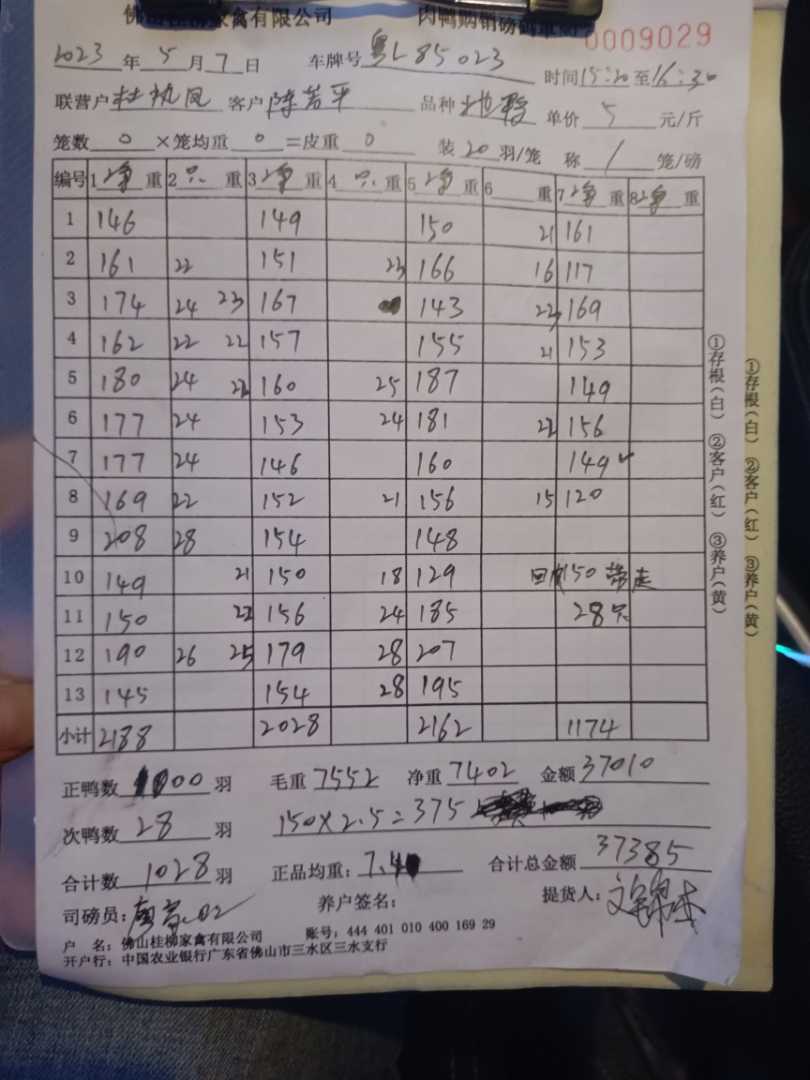 佛山桂柳家禽有限公司 肉鸭购销磅码单No 0009029
2023 年 5 月 7 日 车牌号 粤L85023
时间 15:20 至 16:30
联营户 杜执凤 客户 陈若平 品种 单价 5 元/斤
笼数 0 ×笼均重 0 =皮重 0 装 20 羽/笼 称 1 笼/磅
编号 1 净 重 2 只 重 3 净 重 4 只 重 5 净 重 6 重 7 净 重 8 净 重
1 146 149 150 21 161
2 161 22 151 23 166 16 117
3 174 24 23 167 143 23 169
4 162 22 22 157 155 21 153
5 180 24 22 160 25 187 149
6 177 24 153 24 181 22 156
7 177 24 146 160 149
8 169 22 152 21 156 15 120
9 208 28 154 148
10 149 21 150 18 129 150
11 150 22 156 24 185 28只
12 190 26 25 179 28 207
13 145 154 28 195
小计 2188 2028 2162 1174
正鸭数 1000 羽 毛重 7552 净重 7402 金额 37010
次鸭数 28 羽 150×2.5=375
合计数 1028 羽 正品均重: 7.4 合计总金额 37385
司磅员: 养户签名: 提货人:
户 名: 佛山桂柳家禽有限公司 账号: 444 401 010 400 169 29
开户行: 中国农业银行广东省佛山市三水区三水支行
①存根(白) ②客户(红) ③养户(黄)
①存根(白) ②客户(红) ③养户(黄)